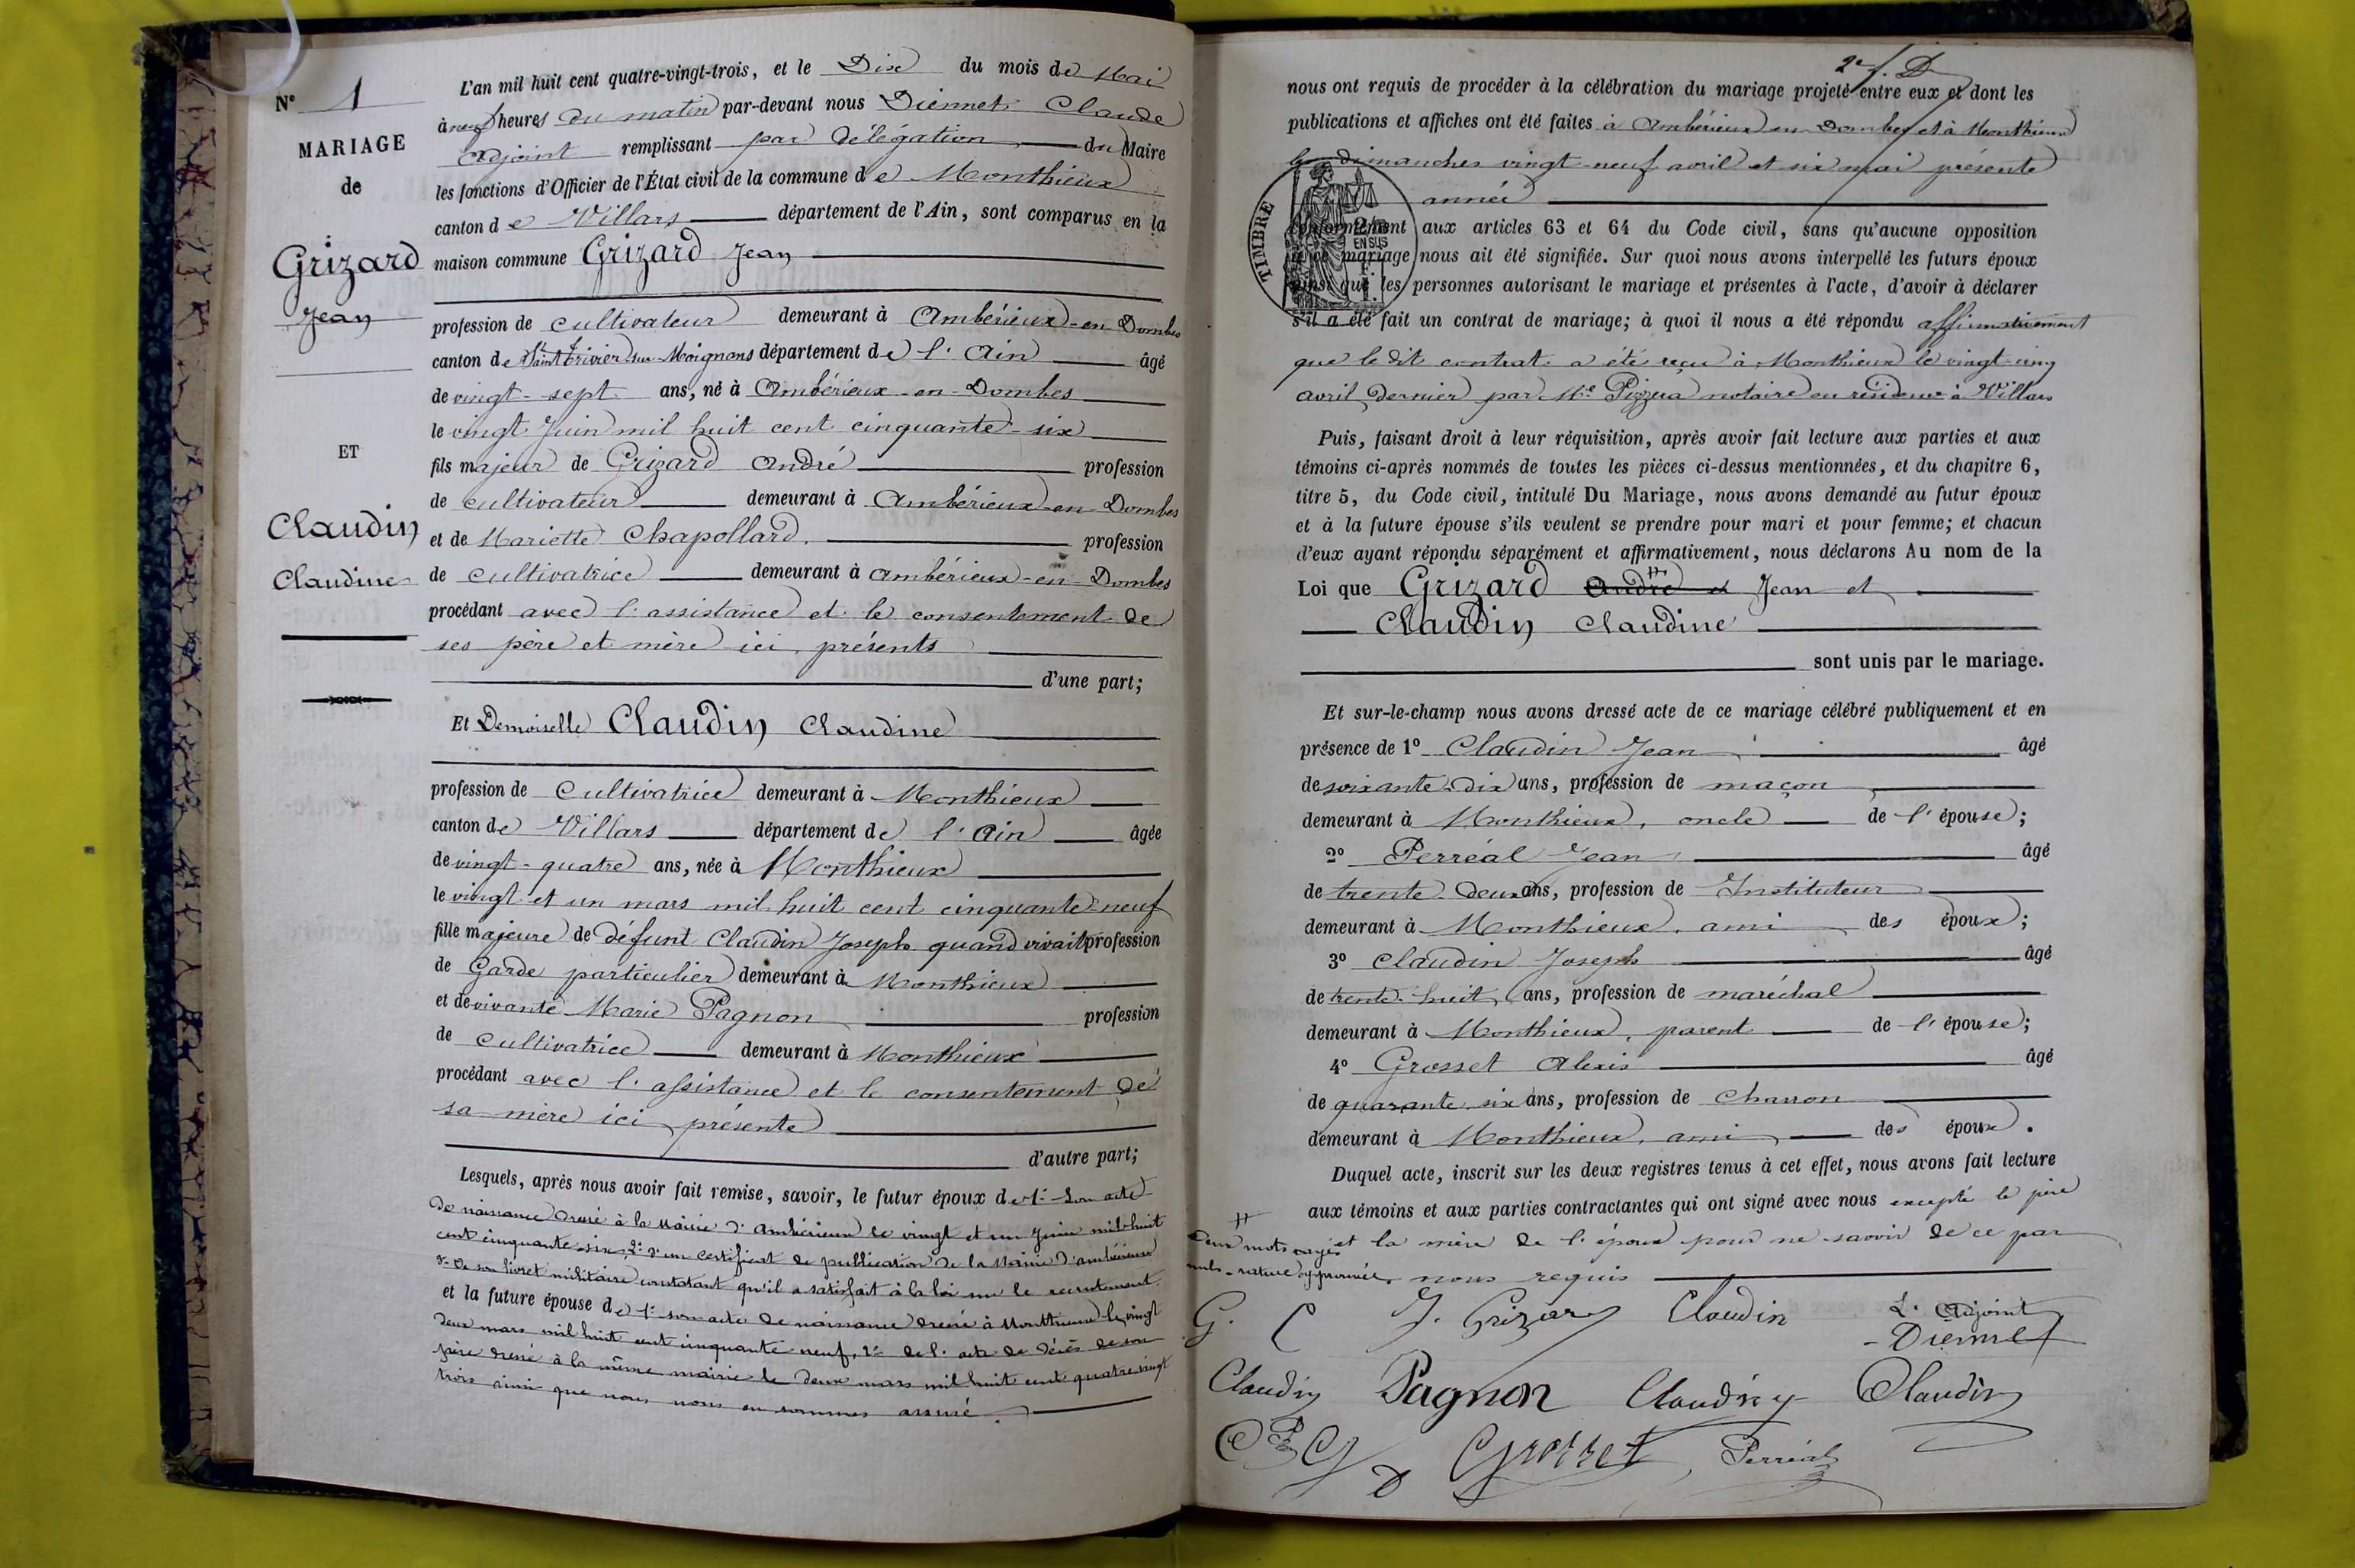 N° 1
MARIAGE
de
Grizard
Jean
ET
Claudin
Claudine
L'an mil huit cent quatre-vingt-trois, et le Dix du mois de Mai
à neuf heures du matin par-devant nous Diennet Claude
adjoint remplissant par délégation du Maire
les fonctions d'Officier de l'État civil de la commune de Monthieux
canton de Villars département de l'Ain, sont comparus en la
maison commune Grizard Jean
profession de cultivateur demeurant à Ambérieux-en-Dombes
canton de Saint Trivier sur Moignans département de l'Ain âgé
de vingt-sept ans, né à Ambérieux-en-Dombes
le vingt Juin mil huit cent cinquante-six
fils majeur de Grizard André profession
de cultivateur demeurant à Ambérieux-en-Dombes
et de Mariette Chapollard profession
de cultivatrice demeurant à Ambérieux-en-Dombes
procédant avec l'assistance et le consentement de
ses père et mère ici présents
d'une part;
Et Demoiselle Claudin Claudine
profession de Cultivatrice demeurant à Monthieux
canton de Villars département de l'Ain âgée
de vingt-quatre ans, née à Monthieux
le vingt et un mars mil huit cent cinquante-neuf
fille majeure de défunt Claudin Joseph quand vivait profession
de Garde particulier demeurant à Monthieux
et de vivante Marie Pagnon profession
de Cultivatrice demeurant à Monthieux
procédant avec l'assistance et le consentement de
sa mère ici présente
d'autre part;
Lesquels, après nous avoir fait remise, savoir, le futur époux de 1° Son acte
de naissance dressé à la Mairie d'Ambérieux le vingt et un Juin mil huit
cent cinquante-six, 2° d'un certificat de publication de la Mairie d'Ambérieux
3° de son livret militaire constatant qu'il a satisfait à la loi sur le recrutement.
et la future épouse de 1° son acte de naissance dressé à Monthieux le vingt
deux mars mil huit cent cinquante neuf, 2° de l'acte de décès de son
père dressé à la même mairie le deux mars mil huit cent quatre vingt
trois ainsi que nous nous en sommes assuré.
2e f. D
nous ont requis de procéder à la célébration du mariage projeté entre eux et dont les
publications et affiches ont été faites à Ambérieux en Dombes et à Monthieux
les dimanches vingt-neuf avril et six mai présente
année
TIMBRE
EN SUS
conformément aux articles 63 et 64 du Code civil, sans qu'aucune opposition
à ce mariage nous ait été signifiée. Sur quoi nous avons interpellé les futurs époux
ainsi que les personnes autorisant le mariage et présentes à l'acte, d'avoir à déclarer
s'il a été fait un contrat de mariage; à quoi il nous a été répondu affirmativement
que le dit contrat a été reçu à Monthieux le vingt-cinq
avril dernier par Me Pizzera notaire en résidence à Villars
Puis, faisant droit à leur réquisition, après avoir fait lecture aux parties et aux
témoins ci-après nommés de toutes les pièces ci-dessus mentionnées, et du chapitre 6,
titre 5, du Code civil, intitulé Du Mariage, nous avons demandé au futur époux
et à la future épouse s'ils veulent se prendre pour mari et pour femme; et chacun
d'eux ayant répondu séparément et affirmativement, nous déclarons Au nom de la
Loi que Grizard André et Jean et
Claudin Claudine
sont unis par le mariage.
Et sur-le-champ nous avons dressé acte de ce mariage célébré publiquement et en
présence de 1° Claudin Jean âgé
de soixante-dix ans, profession de maçon
demeurant à Monthieux, oncle de l'épouse;
2° Perréal Jean âgé
de trente-deux ans, profession de Instituteur
demeurant à Monthieux, ami des époux;
3° Claudin Joseph âgé
de trente-huit ans, profession de maréchal
demeurant à Monthieux, parent de l'épouse;
4° Grosset Alexis âgé
de quarante-six ans, profession de Charron
demeurant à Monthieux, ami des époux.
Duquel acte, inscrit sur les deux registres tenus à cet effet, nous avons fait lecture
aux témoins et aux parties contractantes qui ont signé avec nous excepté le père
et la mère de l'époux pour ne savoir de ce par
nous requis
Deux mots rayés
nuls
G. C J. Grizard Claudin L'Adjoint
Diennet
Claudin Pagnon Claudin Claudin
Grosset Perréal
D